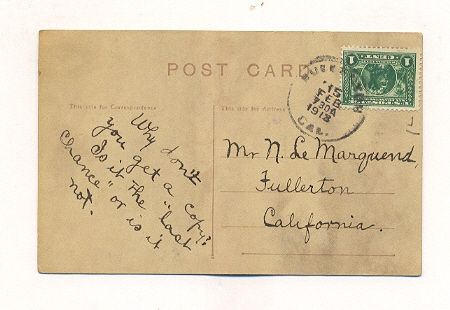 POST CARD
This side for Correspondence
This side for Address
FULLERTON
15
FEB
730A
1913
CAL.
1
Why don't
you get a copy?
Is it the "last
Chance" or is it
not.
Mr N. Le Marquend,
Fullerton
California.